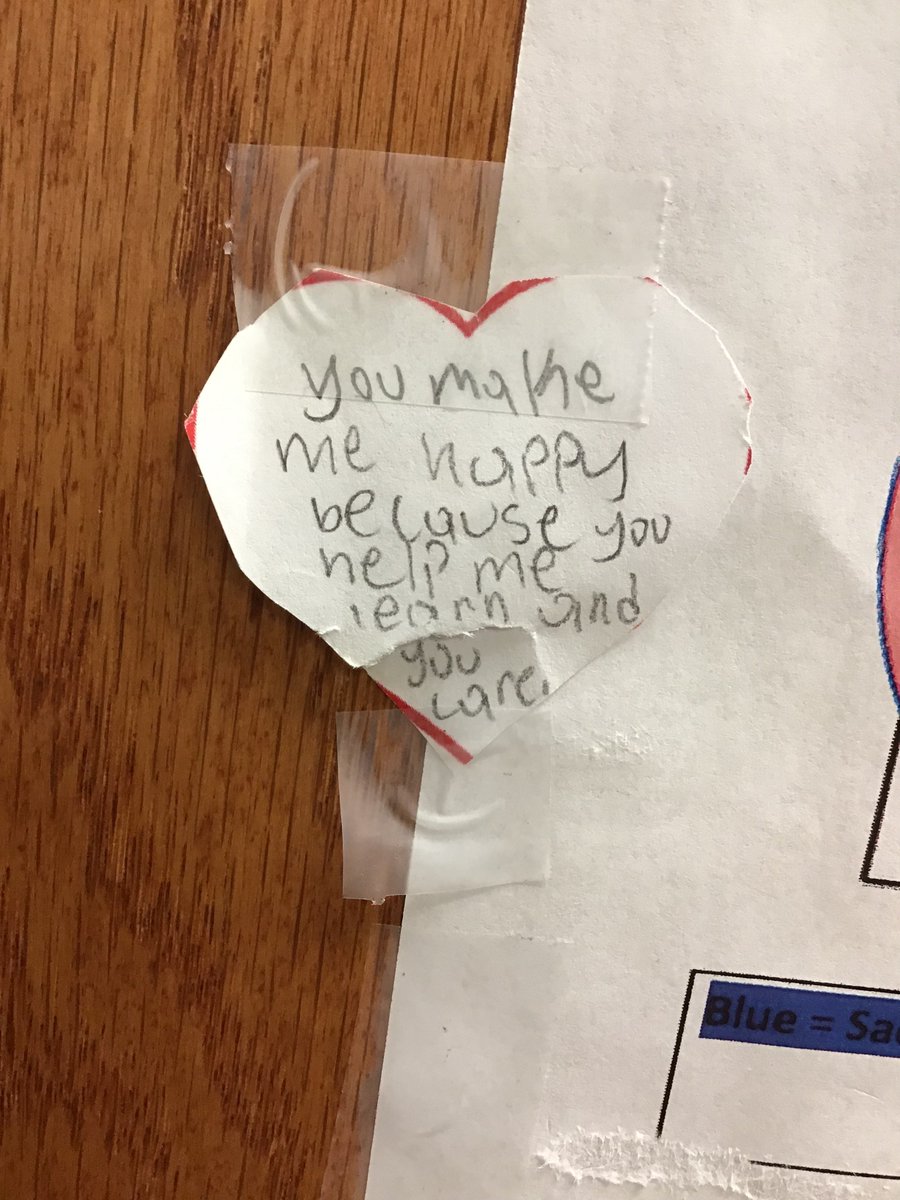 you make
me happy
because you
help me
learn and
you
care.
Blue =